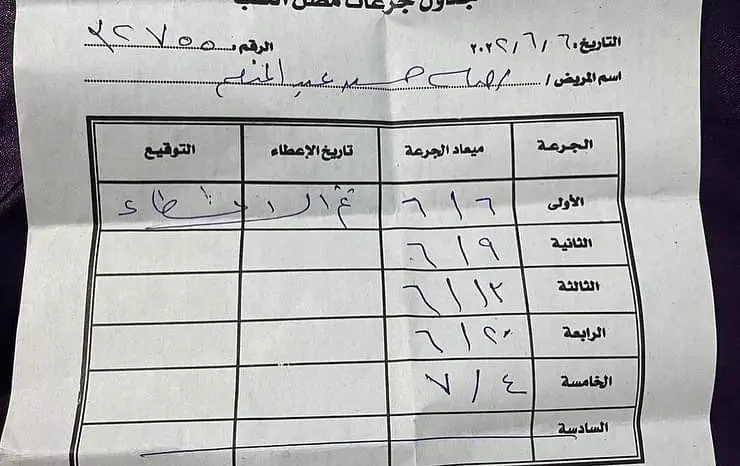 جدول جرعات مصل الكلب
التاريخ: ٢٠٢٢/٦/٦ الرقم: ٣٢٧٥٥
اسم المريض / حسن عبد المنعم
الجرعة ميعاد الجرعة تاريخ الإعطاء التوقيع
الأولى ٦/٦ تم الاعطاء
الثانية ٦/٩
الثالثة ٦/١٣
الرابعة ٦/٢٠
الخامسة ٧/٤
السادسة